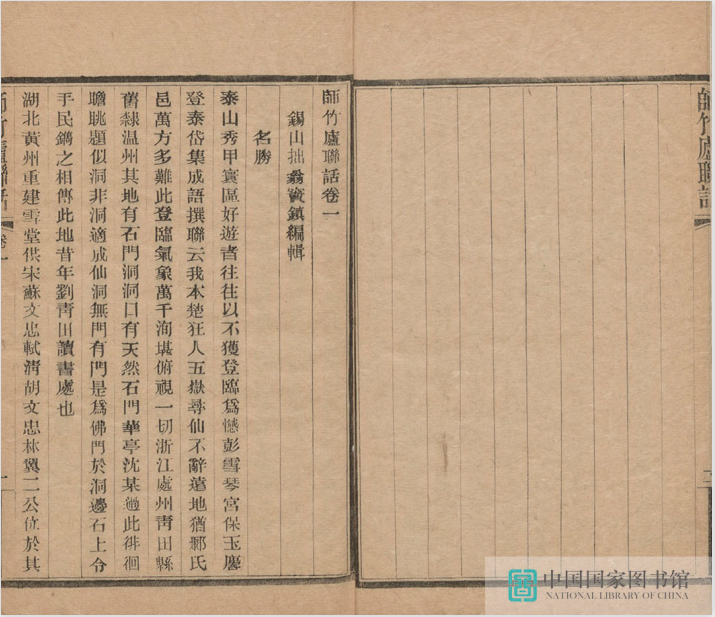 師竹廬聯話
師竹廬聯話卷一
錫山拙翁竇鎮編輯
名勝
泰山秀甲寰區好遊者往往以不獲登臨爲憾彭雪琴宮保玉麐
登泰岱集成語撰聯云我本楚狂人五嶽尋仙不辭遠地猶鄹氏
邑萬方多難此登臨氣象萬千洵堪俯視一切浙江處州青田縣
舊隸温州其地有石門洞洞口有天然石門華亭沈某過此徘徊
瞻眺題似洞非洞適成仙洞無門有門是爲佛門於洞邊石上令
手民鐫之相傳此地昔年劉青田讀書處也
湖北黃州重建雪堂供宋蘇文忠軾清胡文忠林翼二公位於其
師竹廬聯話
卷一
一
中国国家图书馆
NATIONAL LIBRARY OF CHINA